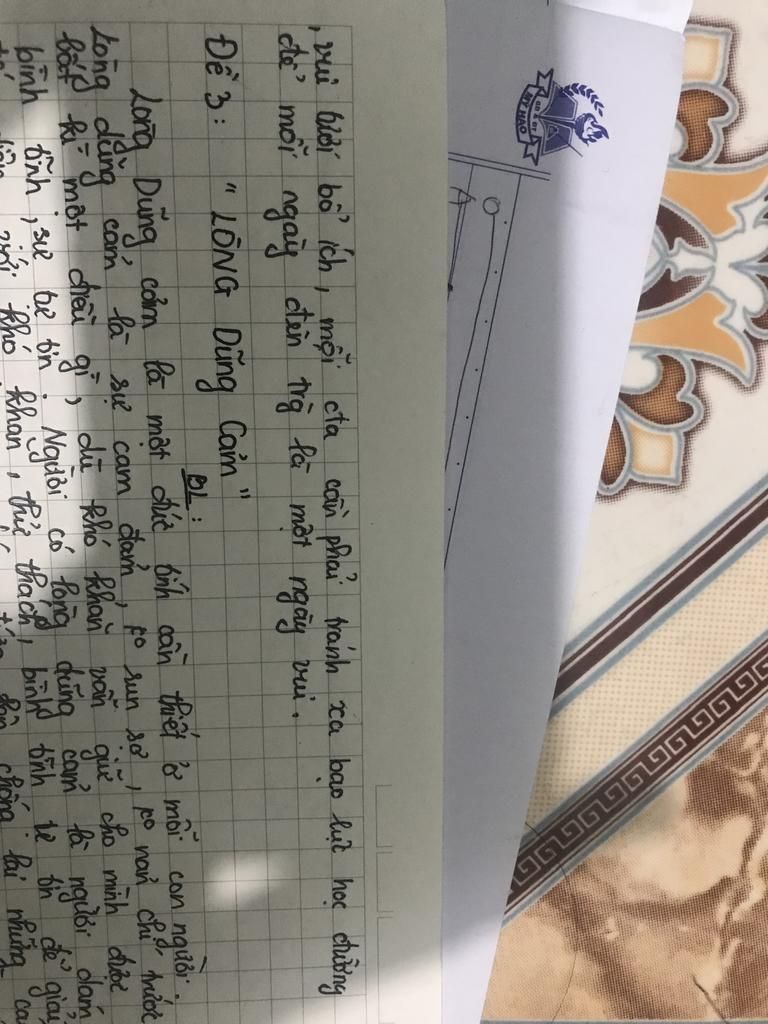 , vui tươi bổ ích, mỗi cta cần phải tránh xa bạo lực học đường
để mỗi ngày đến trg là một ngày vui.
Đề 3: "LÒNG Dũng Cảm"
BL:
Lòng Dũng cảm là một đức tính cần thiết ở mỗi con người.
Lòng dũng cảm là sự can đảm, ko run sợ, ko nản chí, trước
bất kì một điều gì, dù khó khăn vẫn giữ cho mình được
bình tĩnh, sự tự tin. Người có lòng dũng cảm là người dám
với khó khăn, thử thách, bình tĩnh tự tin để giải
chống lại những
MỸ HÀO